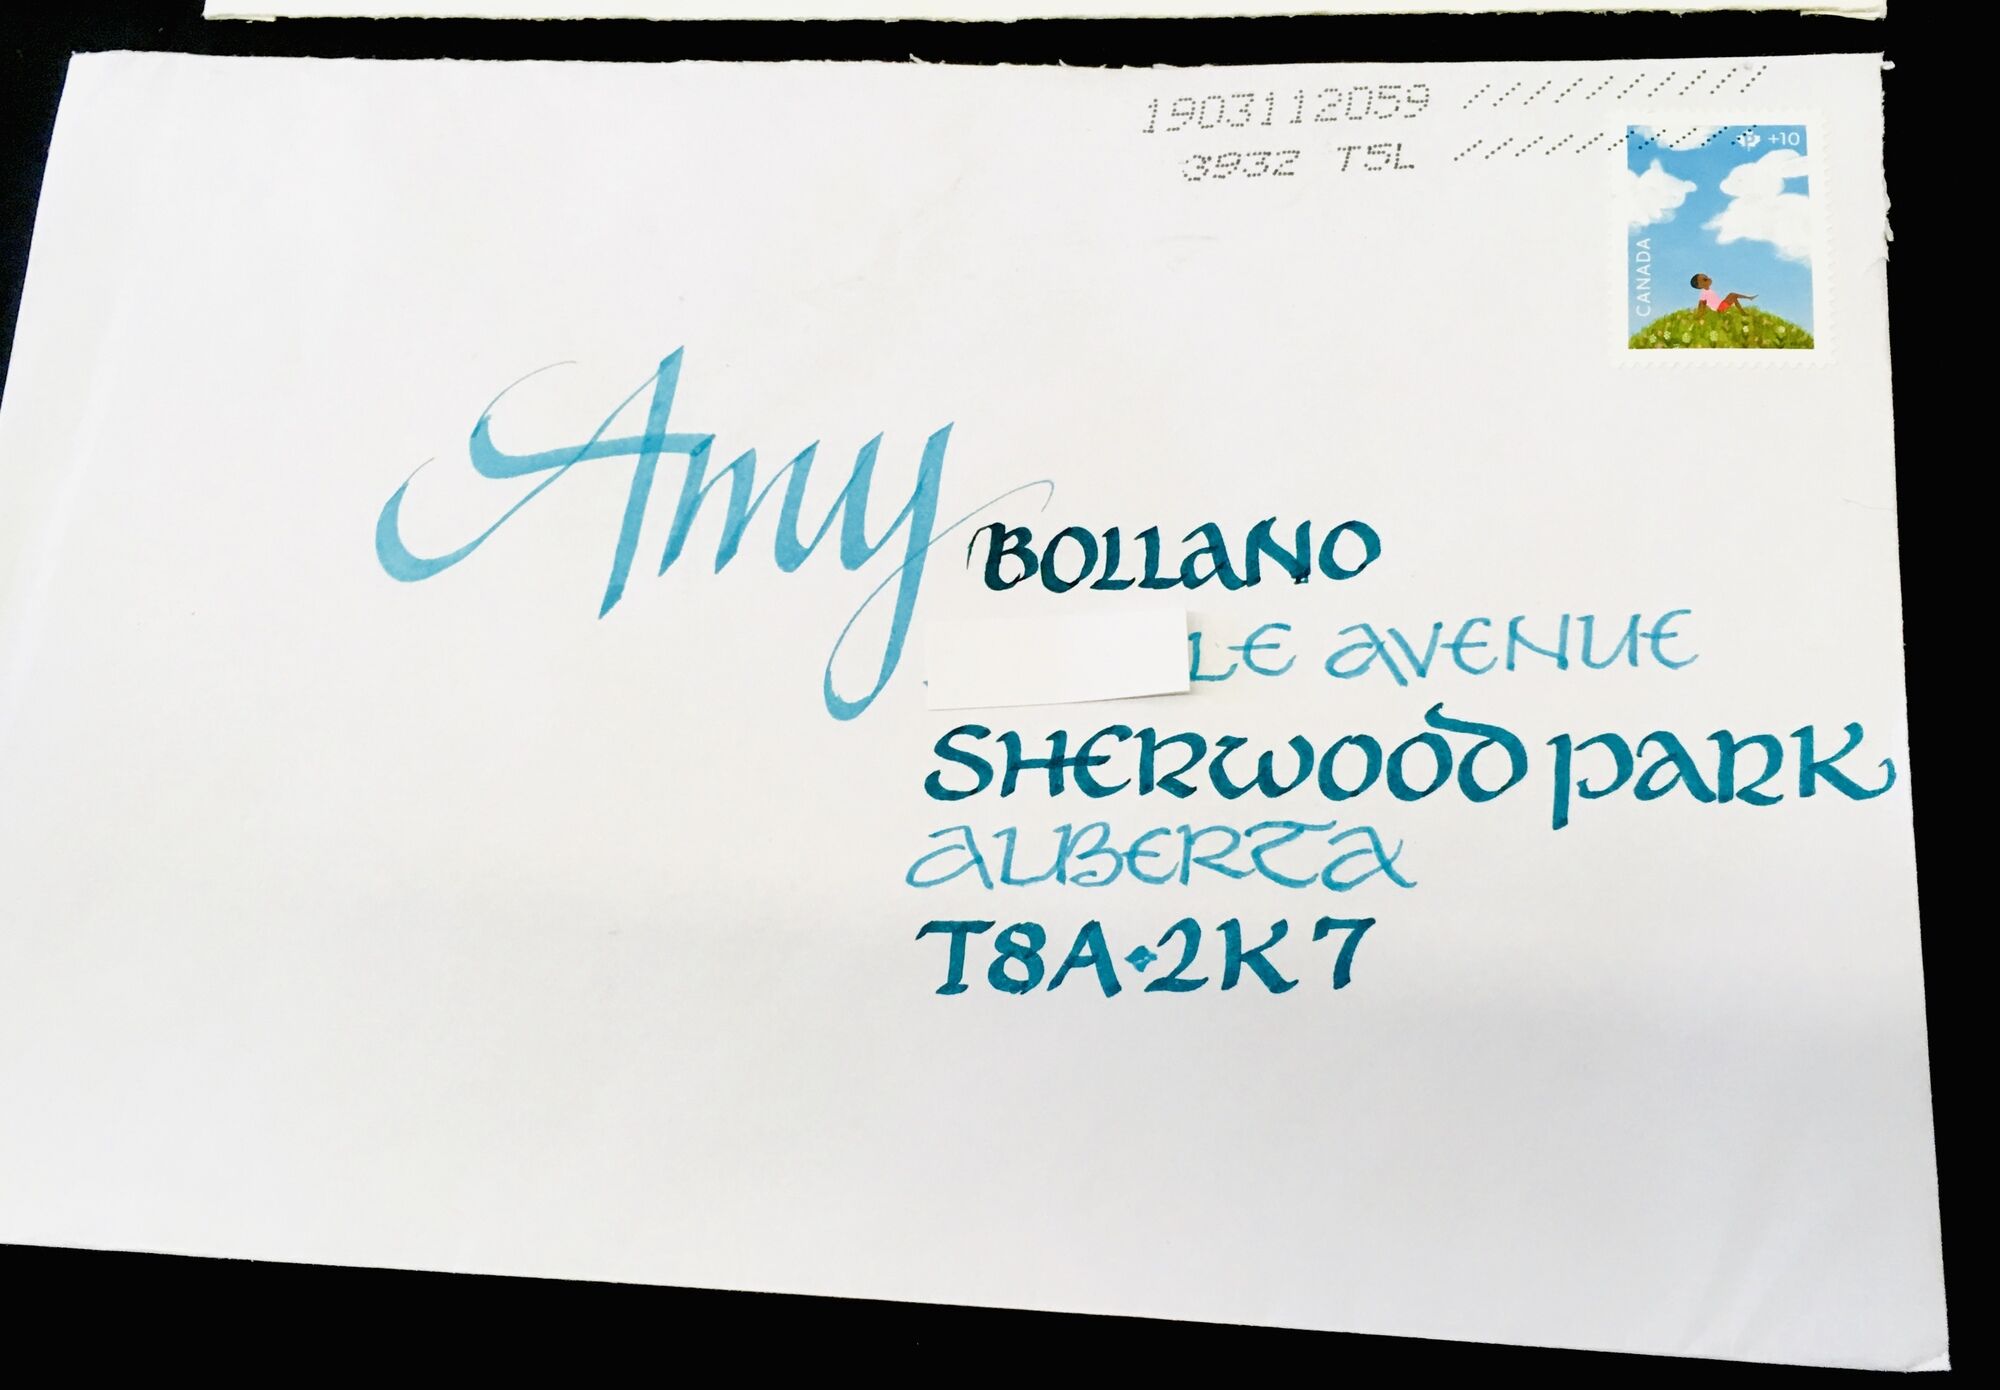 1903112059
3932 T5L
+10
CANADA
Amy BOLLANO
LE AVENUE
SHERWOOD PARK
ALBERTA
T8A 2K7